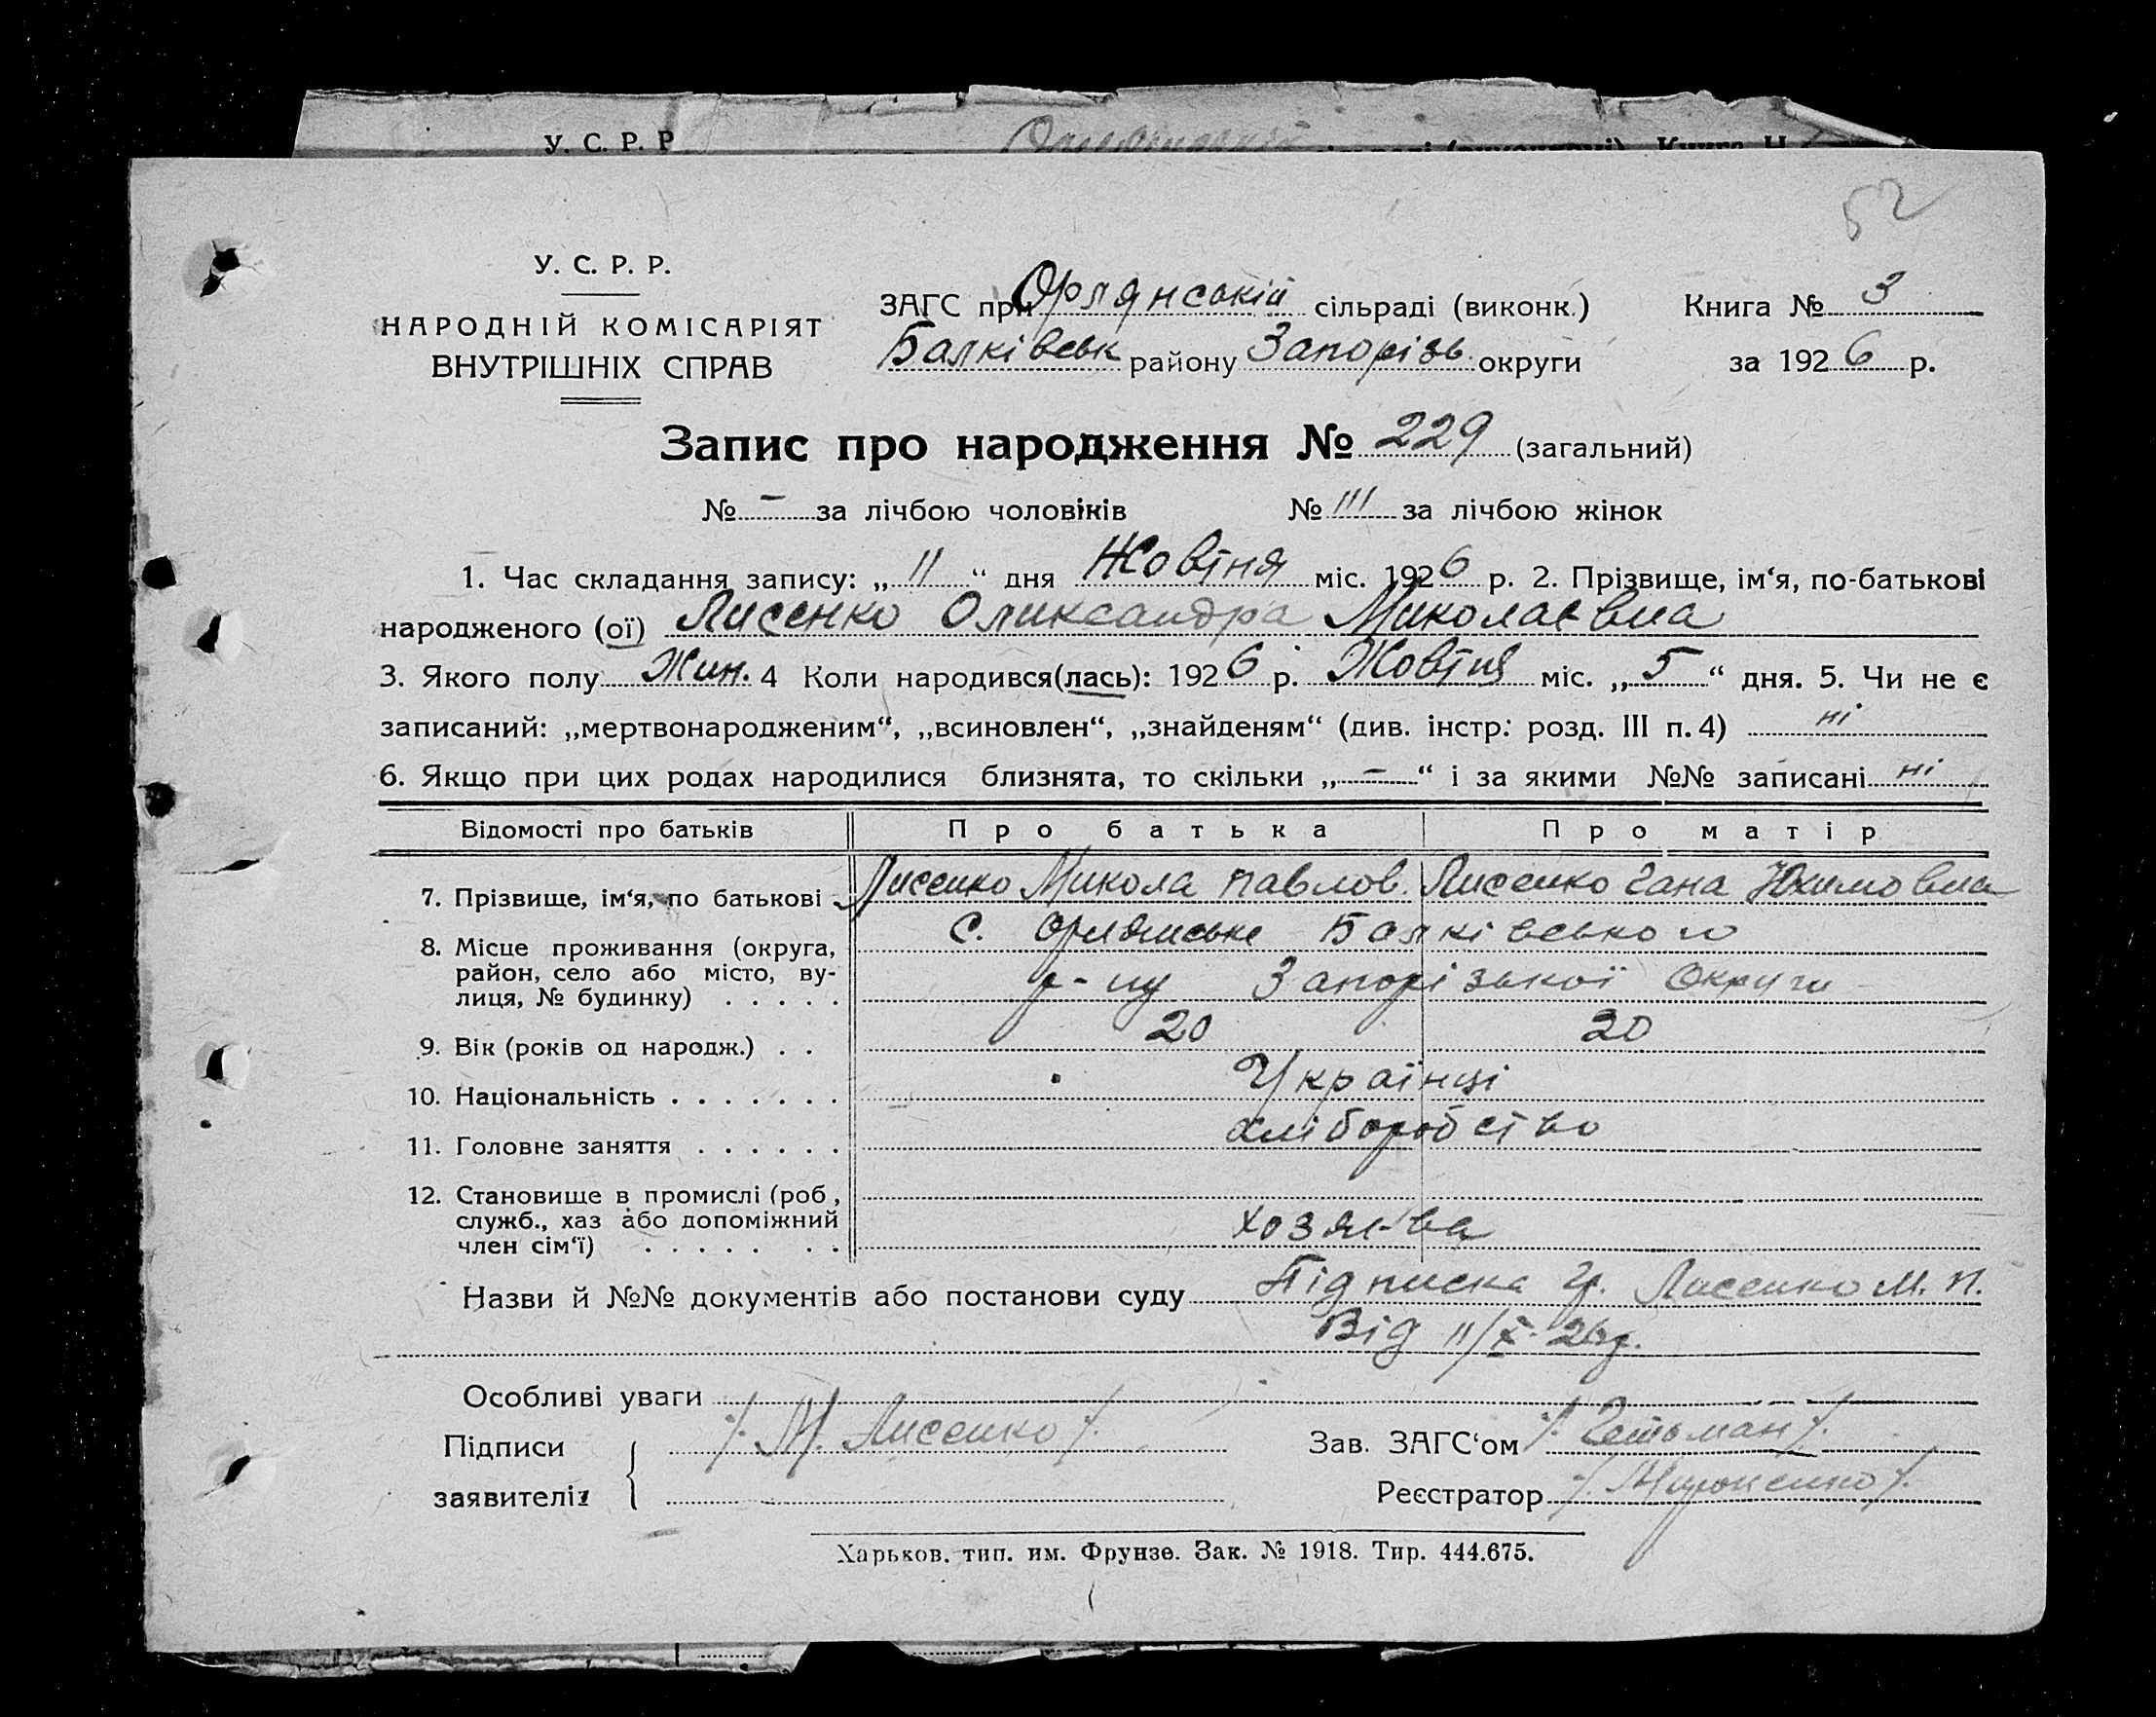 У. С. Р. Р
52
У. С. Р. Р.
НАРОДНІЙ КОМІСАРІЯТ
ВНУТРІШНІХ СПРАВ
ЗАГС при Орлянській сільраді (виконк.) Книга № 3
Балківськ району Запорізь. округи за 1926 р.
Запис про народження № 229 (загальний)
№ – за лічбою чоловіків № 111 за лічбою жінок
1. Час складання запису: „11“ дня Жовтня міс. 1926 р. 2. Прізвище, ім‘я, по-батькові
народженого (ої) Лисенко Оликсандра Миколаєвна
3. Якого полу Жин. 4 Коли народився(лась): 1926 р. Жовтня міс. „5“ дня. 5. Чи не є
записаний: „мертвонародженим“, „всиновлен“, „знайденям“ (див. інстр: розд. III п. 4) ні
6. Якщо при цих родах народилися близнята, то скільки „–“ і за якими №№ записані ні
Відомості про батьків Про батька Про матір
7. Прізвище, ім‘я, по батькові Лисенко Микола Павлов. Лисенко Гана Юхимовна
8. Місце проживання (округа, с. Орлянське Балківського
район, село або місто, ву-
лиця, № будинку) . . . . . р-ну Запорізької Округи
9. Вік (років од народж.) . . 20 20
10. Національність . . . . . . . Українці
11. Головне заняття . . . . . . хліборобство
12. Становище в промислі (роб,
служб., хаз або допоміжний
член сім‘ї) . . . . . . . хозяї-ва
Назви й №№ документів або постанови суду Підписка гр. Лисенко М. П.
Від 11/X-26 р.
Особливі уваги
Підписи /. М. Лисенко /. Зав. ЗАГС‘ом /. Гетьман /.
заявителів Реєстратор /. Мироненко /.
Харьков. тип. им. Фрунзе. Зак. № 1918. Тир. 444.675.